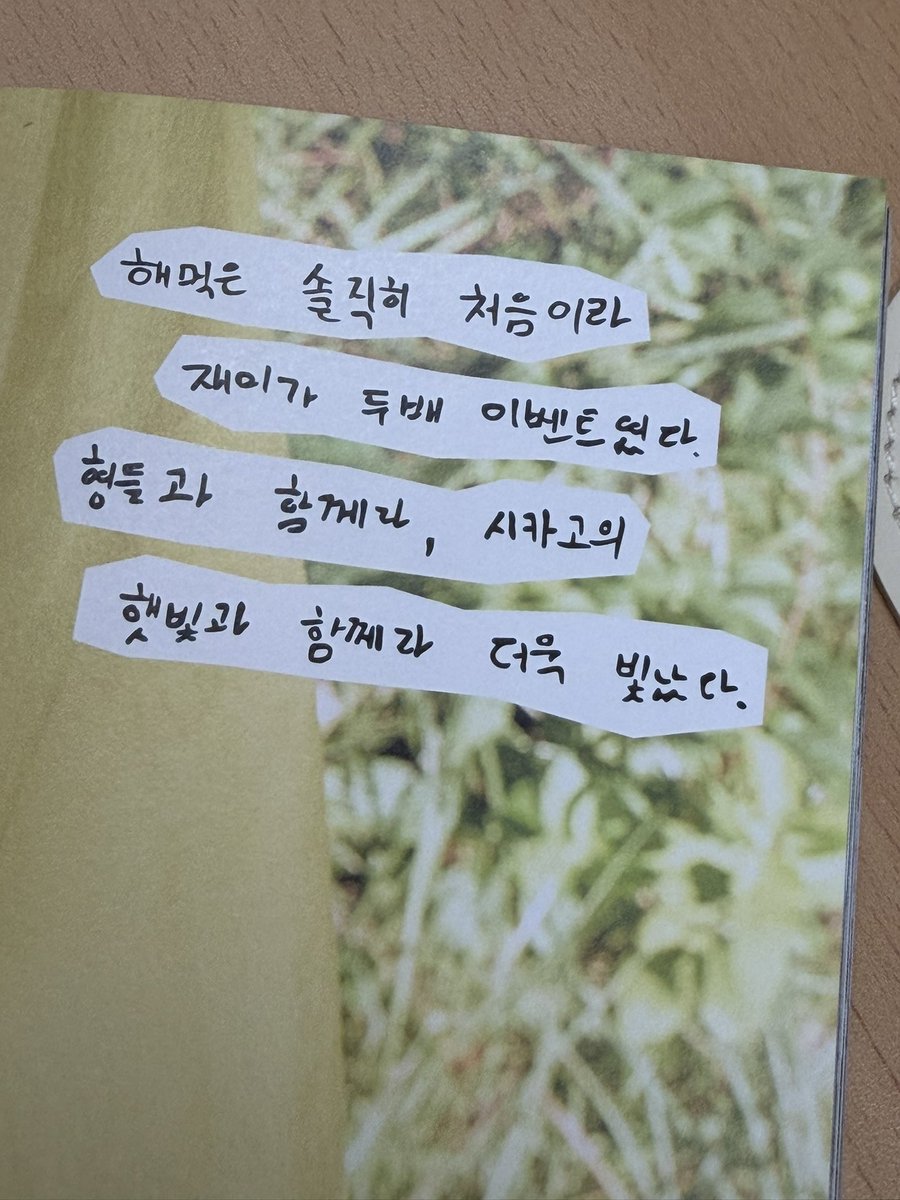 해먹은 솔직히 처음이라
재미가 두배 이벤트였다.
형들과 함께라, 시카고의
햇빛과 함께라 더욱 빛났다.